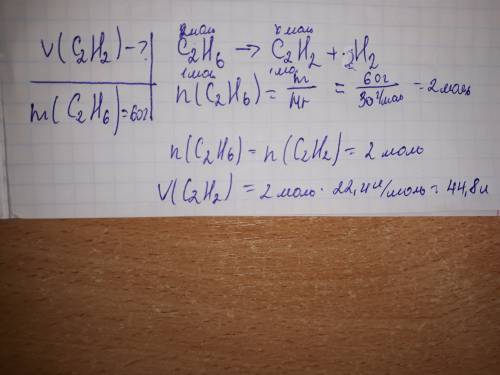 V(C₂H₂) - ?
m(C₂H₆) = 60г
2моль x моль
C₂H₆ → C₂H₂ + 2H₂
1моль 1мол
n(C₂H₆) = m/Mr = 60г/30г/моль = 2моль
n(C₂H₆) = n(C₂H₂) = 2 моль
V(C₂H₂) = 2 моль · 22,4л/моль = 44,8л